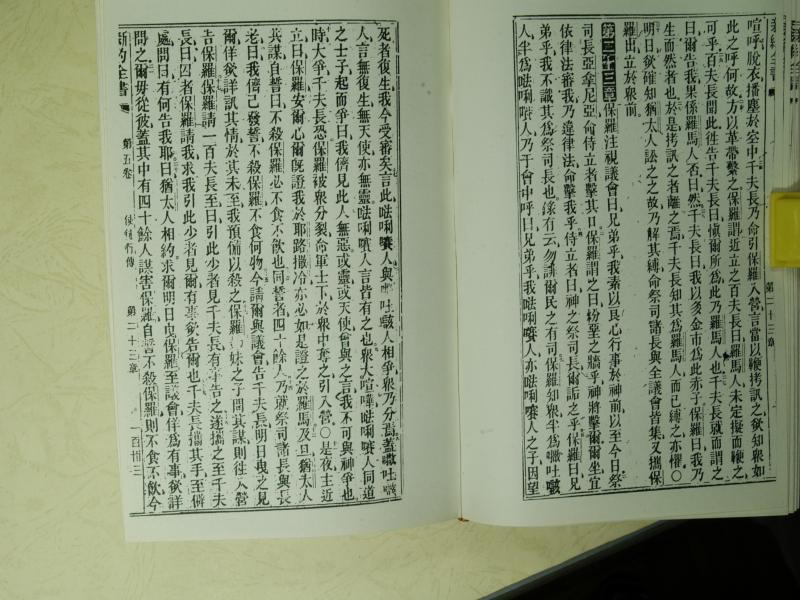 喧呼脫衣播塵於空中千夫長乃命引保羅入營言當以鞭拷訊之欲知衆如
此之呼何故方以革帶繫之保羅謂近立之百夫長曰羅馬人未定擬而鞭之
可乎百夫長聞此徃告千夫長曰愼爾所爲此乃羅馬人也千夫長就而謂之
曰爾告我果係羅馬人否曰然千夫長曰我以多金市爲此亦子保羅曰我乃
生而然者也於是拷訊之者離之焉千夫長知其爲羅馬人而已縛之亦懼○
明日欲確知猶太人訟之之故乃解其縛命祭司諸長與全議會皆集又攜保
羅出立於衆前
第二十三章保羅注視議會曰兄弟乎我素以良心行事於神前以至今日祭
司長亞拿尼亞命侍立者擊其口保羅謂之曰粉堊之牆乎神將擊爾爾坐宜
依律法審我乃違律法命擊我乎侍立者曰神之祭司長爾詬之乎保羅曰兄
弟乎我不識其爲祭司長也錄有云勿誹爾民之有司保羅知衆半爲㘔吐㗲
人半爲㕸唎㘔人乃于會中呼曰兄弟乎我㕸唎㘔人亦㕸唎㘔人之子因望
第二十三章
死者復生我今受審矣言此㕸唎㘔人與 吐㗲人相爭衆乃分焉蓋 吐㗲
人言無復生無天使亦無靈㕸唎㘔人言皆有之也衆大喧嘩㕸唎㘔人同道
之士子起而爭曰我儕見此人無惡或靈或天使會與之言我不可與神爭也
時大爭千夫長恐保羅被衆分裂命軍士下於衆中奪之引入營○是夜主近
立曰保羅安爾心爾旣證我於耶路撒冷亦必如是證之於羅馬及旦猶太人
共謀自誓曰不殺保羅必不食不飲也同誓者四十餘人乃就祭司諸長與長
老曰我儕已發誓不殺保羅不食何物今請爾與議會告千夫長明日曳之見
爾佯欲詳訊其情於其未至我預備以殺之保羅 妹之子聞其謀則徃入營
告保羅保羅請一百夫長至曰引此少者見千夫長有事告之遂攜之至千夫
長曰囚者保羅請我求我引此少者見爾有事欲告爾也千夫長攜其手至僻
處問曰有何告我耶曰猶太人相約求爾明日曳保羅至議會佯爲有事欲詳
問之爾毋從彼蓋其中有四十餘人謀害保羅自誓不殺保羅則不食不飲今
新約全書 第五卷 使徒行傳 第二十三章 一百卅三